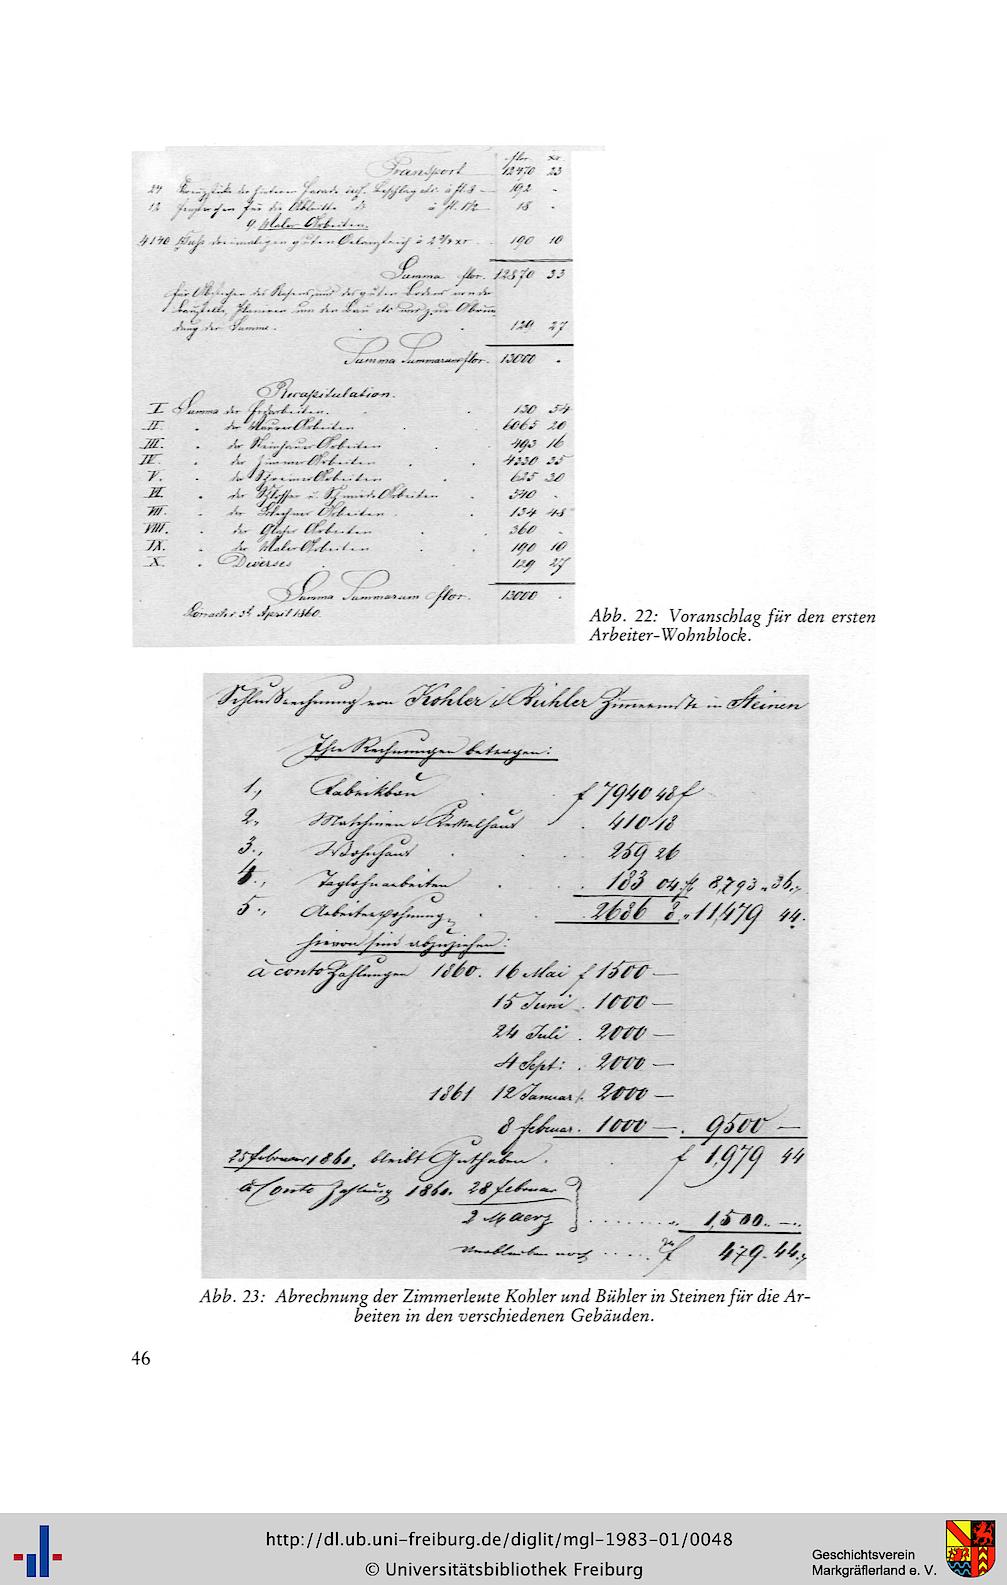 flor. xr
Transport 12470 23
24 192 -
12 für die Abtritte 18 -
9. Maler Arbeiten.
4140 190 10
Summa flor. 12870 33
129 27
Summa Summarum flor. 13000 -
Recapitulation.
I. Summa der Erdarbeiten. 130 54
II. der Maurer Arbeiten 6065 20
III. der Steinhauer Arbeiten 493 16
IV. der Zimmer Arbeiten 4330 35
V. der Schreiner Arbeiten 625 30
VI. der Schlosser u. Schmiede Arbeiten 540 -
VII. der Blechner Arbeiten 134 48
VIII. der Glaser Arbeiten 360 -
IX. der Maler Arbeiten 190 10
X. Diverses 129 27
Summa Summarum flor. 13000 -
April 1860.
Abb. 22: Voranschlag für den ersten
Arbeiter-Wohnblock.
Schlußrechnung von Kohler & Bühler in Steinen
Ihre Rechnungen betragen:
1., Fabrikbau f 7940 48
2., Maschinen & Kesselhaus 410 18
3., Wohnhaus 259 26
4., Taglohnarbeiten 183 04 fl 8,793 „ 36
5., Arbeiterwohnung 2686 8 „ 11,479 44
hievon sind abzuziehen:
à conto Zahlungen 1860. 16 Mai f 1500 —
15 Juni . 1000 —
24 Juli . 2000 —
4 Sept: . 2000 —
1861 12 Januar 2000 —
8 Februar . 1000 — . 9500 —
25 Februar 1861. bleibt Guthaben . f 1,979 44
à Conto Zahlung 1861. 28 Februar
2 Maerz 1,500 „ —
Verbleiben noch f 479 „ 44
Abb. 23: Abrechnung der Zimmerleute Kohler und Bühler in Steinen für die Ar-
beiten in den verschiedenen Gebäuden.
46
http://dl.ub.uni-freiburg.de/diglit/mgl-1983-01/0048
© Universitätsbibliothek Freiburg
Geschichtsverein
Markgräflerland e. V.